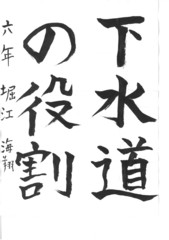 下水道
の役割
六年 堀江 海翔